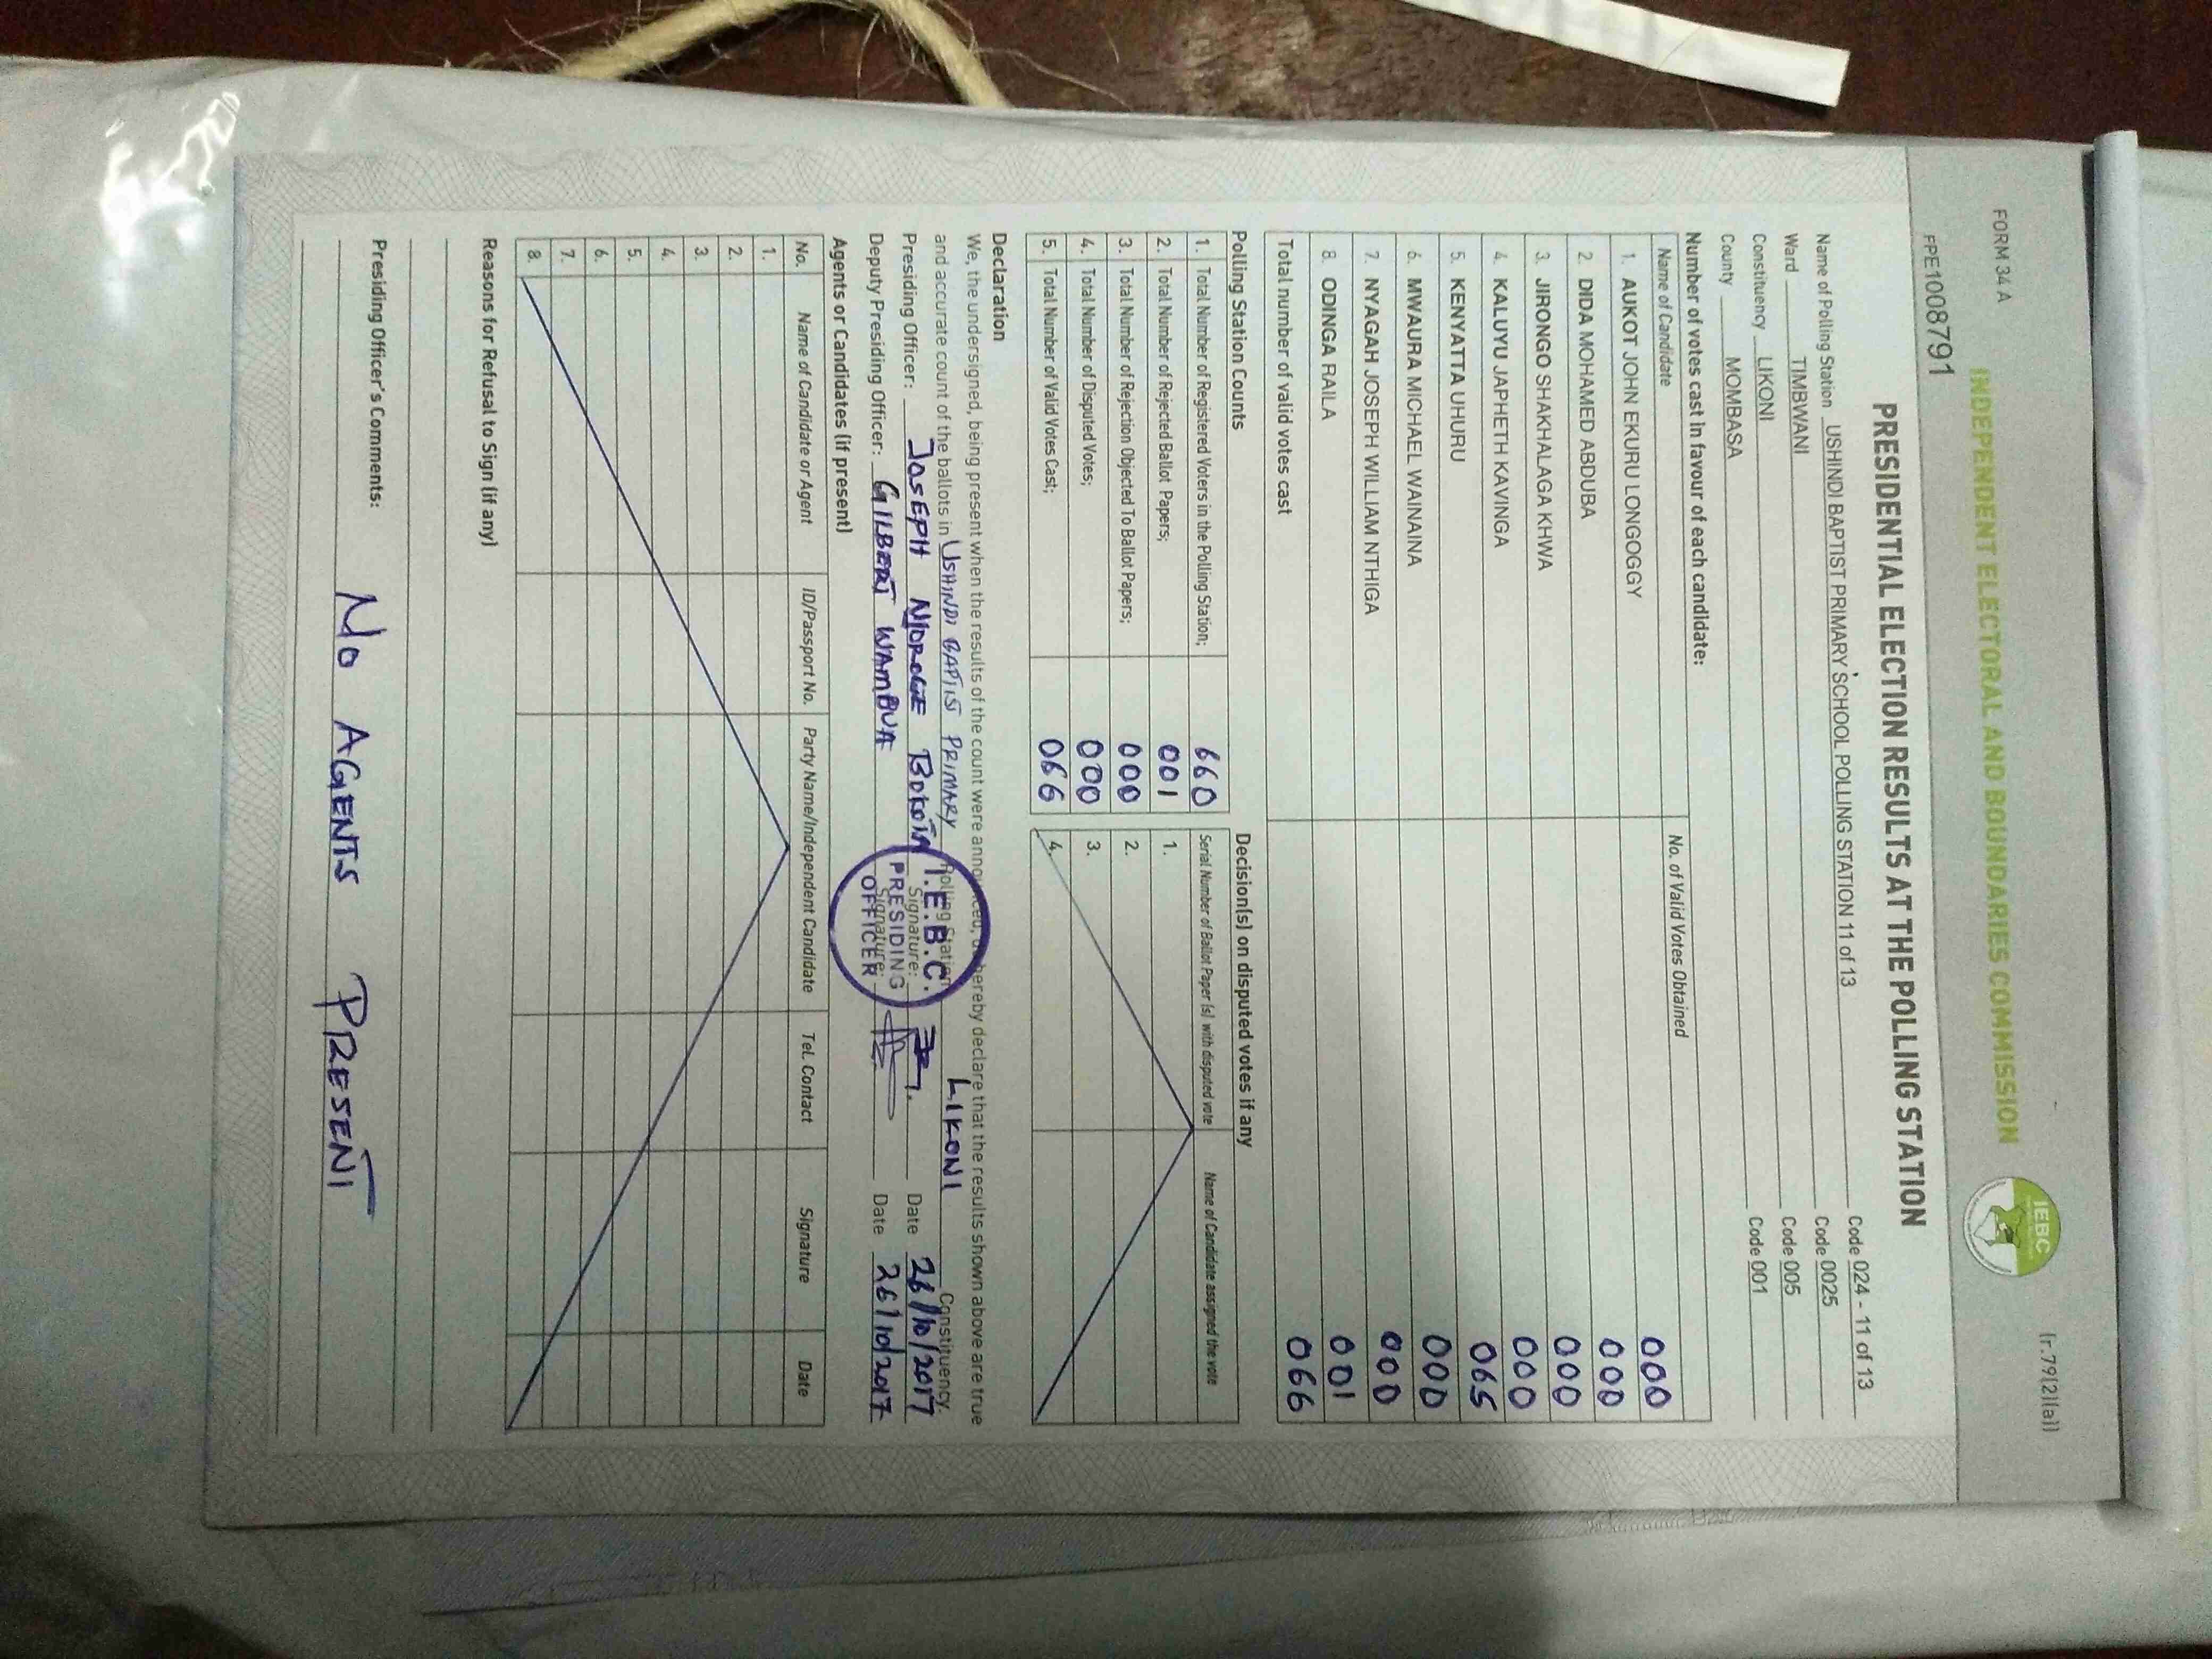 FORM 34 A
(r.79(2)(a))
INDEPENDENT ELECTORAL AND BOUNDARIES COMMISSION
IEBC
FPE1008791
PRESIDENTIAL ELECTION RESULTS AT THE POLLING STATION
Name of Polling Station USHINDI BAPTIST PRIMARY SCHOOL POLLING STATION 11 of 13 Code 024 - 11 of 13
Ward TIMBWANI Code 0025
Constituency LIKONI Code 005
County MOMBASA Code 001
Number of votes cast in favour of each candidate:
Name of Candidate No. of Valid Votes Obtained
1. AUKOT JOHN EKURU LONGOGGY 000
2. DIDA MOHAMED ABDUBA 000
3. JIRONGO SHAKHALAGA KHWA 000
4. KALUYU JAPHETH KAVINGA 000
5. KENYATTA UHURU 065
6. MWAURA MICHAEL WAINAINA 000
7. NYAGAH JOSEPH WILLIAM NTHIGA 000
8. ODINGA RAILA 001
Total number of valid votes cast 066
Polling Station Counts
1. Total Number of Registered Voters in the Polling Station; 660
2. Total Number of Rejected Ballot Papers; 001
3. Total Number of Rejection Objected To Ballot Papers; 000
4. Total Number of Disputed Votes; 000
5. Total Number of Valid Votes Cast; 066
Decision(s) on disputed votes if any
Serial Number of Ballot Paper (s) with disputed vote Name of Candidate assigned the vote
1.
2.
3.
4.
Declaration
We, the undersigned, being present when the results of the count were announced, do hereby declare that the results shown above are true
and accurate count of the ballots in USHINDI BAPTIST PRIMARY Polling Station LIKONI Constituency.
Presiding Officer: JOSEPH NJOROGE Signature: Date 26/10/2017
Deputy Presiding Officer: GILBERT WAMBUA Signature: Date 26/10/2017
I.E.B.C.
PRESIDING
OFFICER
Agents or Candidates (if present)
No. Name of Candidate or Agent ID/Passport No. Party Name/Independent Candidate Tel. Contact Signature Date
1.
2.
3.
4.
5.
6.
7.
8.
Reasons for Refusal to Sign (if any)
Presiding Officer's Comments:
NO AGENTS PRESENT